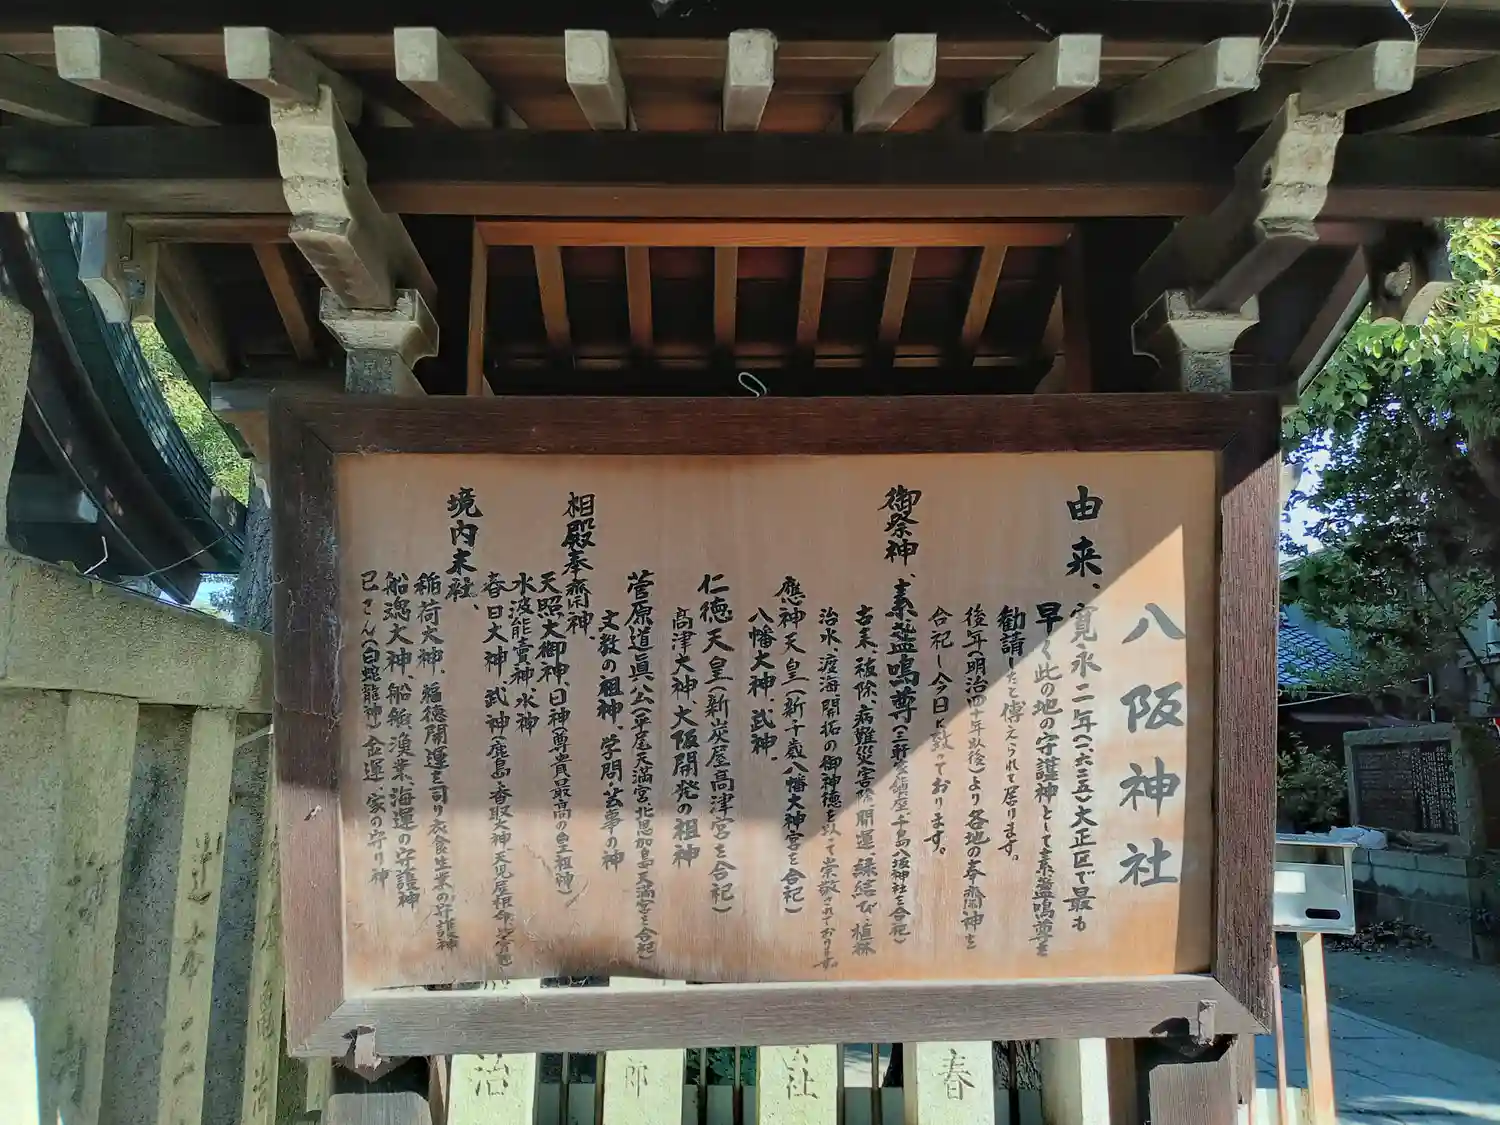 八阪神社
由来、寛永二年(一六二五)大正区で最も
早く此の地の守護神として素盞鳴尊を
勧請したと傳えられて居ります。
後年(明治四十年以後)より各地の奉斎神を
合祀し今日に致っております。
御祭神、素盞鳴尊(三軒家鎮座・千島八坂神社を合祀)
古来、祓除、病難災害除、開運、縁結び、植林
治水、渡海開拓の御神徳を以て崇敬されております。
應神天皇(新千歳八幡大神宮を合祀)
八幡大神、武神、
仁徳天皇(新炭屋高津宮を合祀)
高津大神、大阪開発の祖神
菅原道眞公(平尾天満宮、北恩加島天満宮を合祀)
文教の祖神、学問・芸事の神
相殿奉斎神
天照大御神、日神(尊貴最高の皇祖神)
水波能賣神、水神
春日大神、武神(鹿島・香取大神・天児屋根命・比賣神)
境内末社、
稲荷大神、福徳開運を司り衣食生業の守護神
船魂大神、船舶、漁業、海運の守護神
巳さん(白蛇龍神)金運、家の守り神
治
郎
社
春